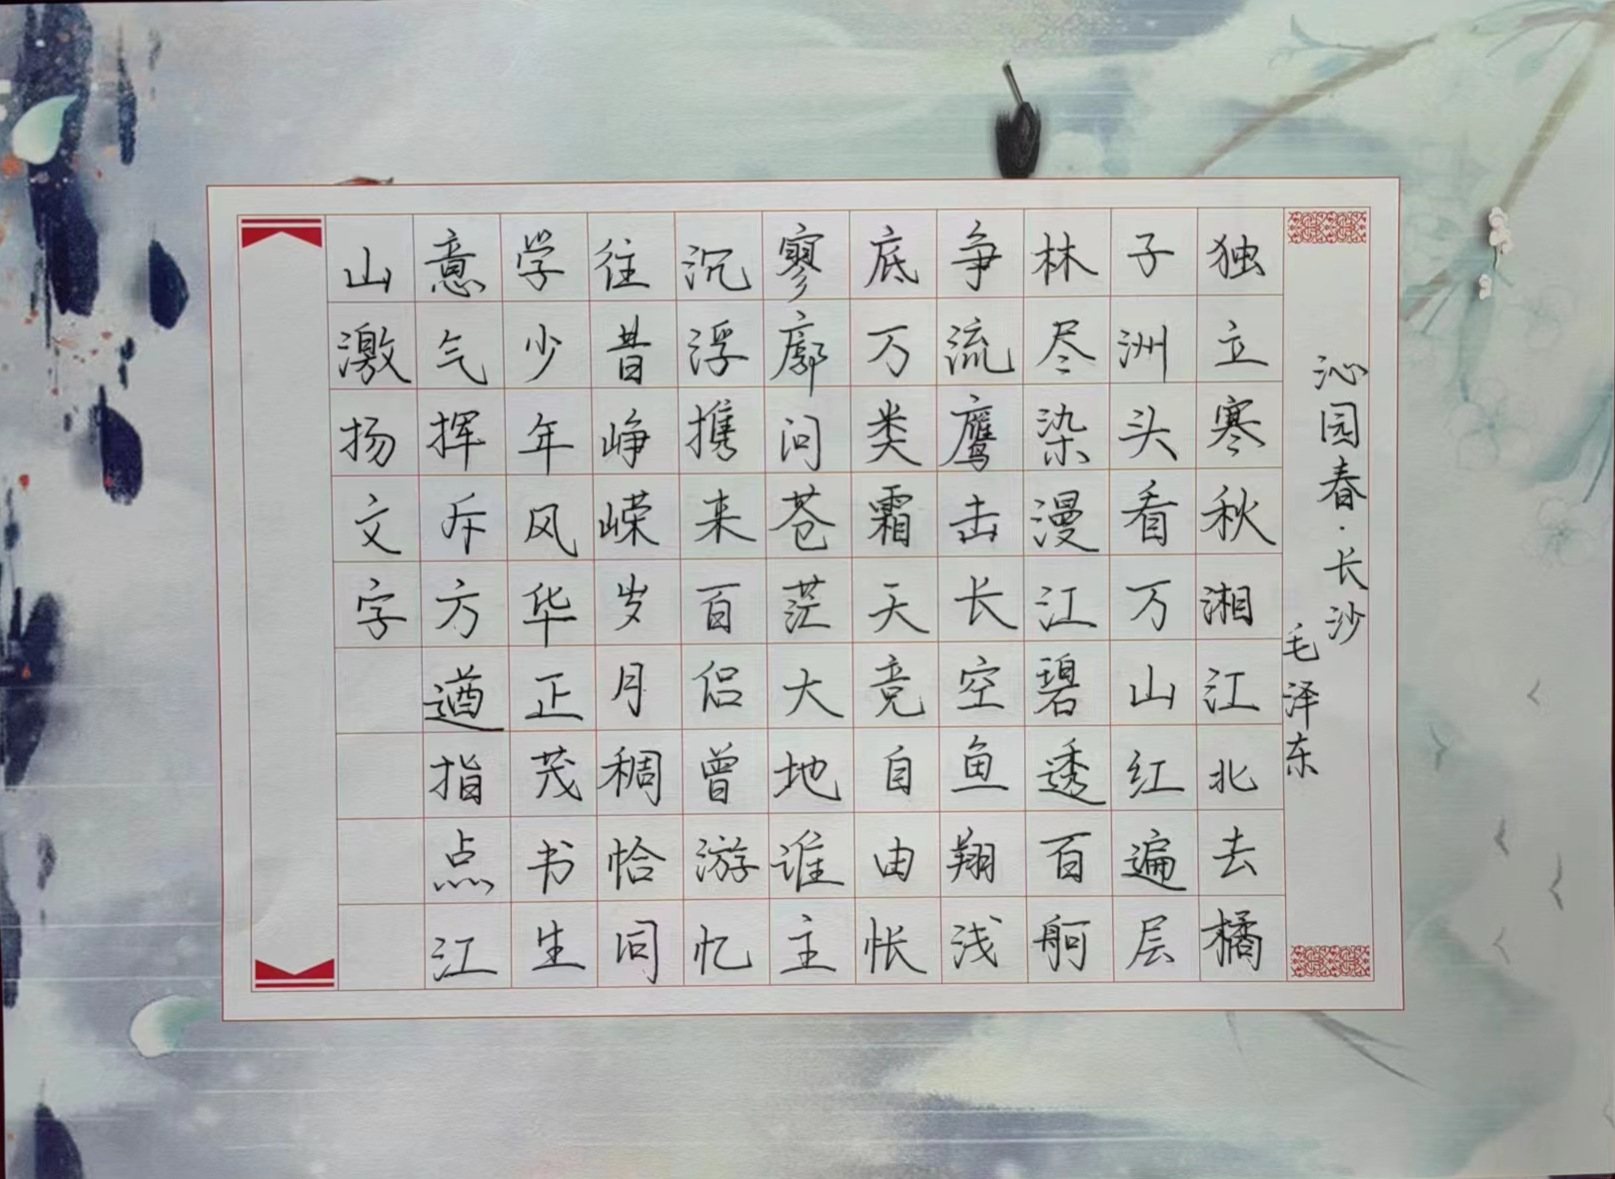 沁园春·长沙
毛泽东
独立寒秋湘江北去橘
子洲头看万山红遍层
林尽染漫江碧透百舸
争流鹰击长空鱼翔浅
底万类霜天竞自由怅
寥廓问苍茫大地谁主
沉浮携来百侣曾游忆
往昔峥嵘岁月稠恰同
学少年风华正茂书生
意气挥斥方遒指点江
山激扬文字